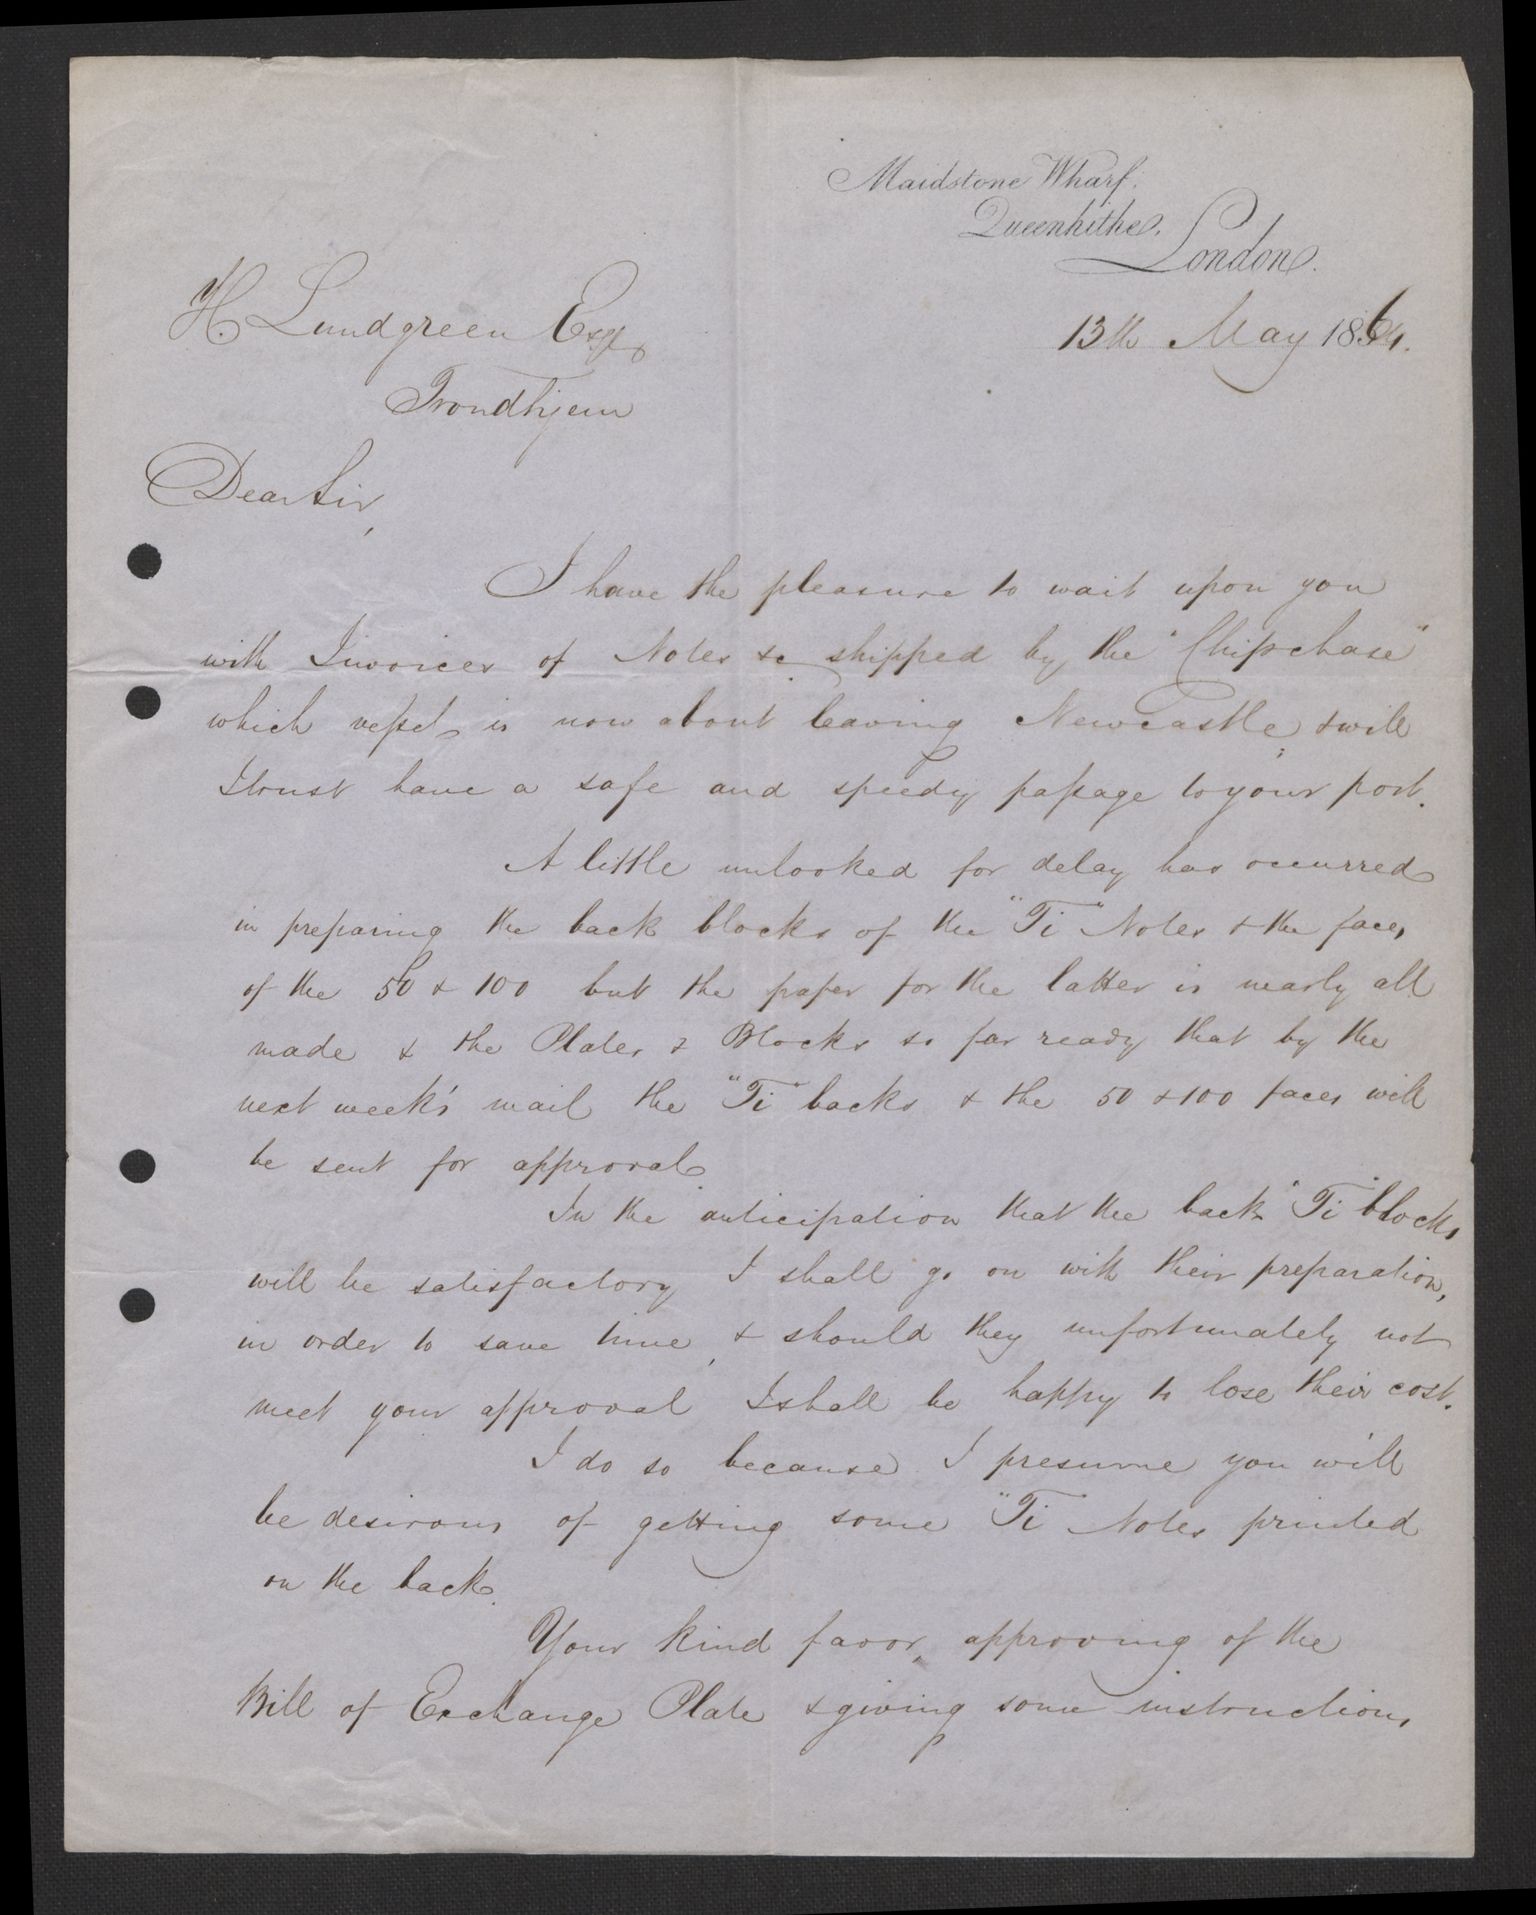 Maidstone Wharf.
Queenhithe.
London.
13th May 1864.
H. Lundgreen Esqr
Trondhjem
Dear Sir,
I have the pleasure to wait upon you
with Invoices of Notes &c shipped by the "Chipchase"
which vessel is now about leaving Newcastle, & will
I trust have a safe and speedy passage to your port.
A little unlooked for delay has occurred
in preparing the back blocks of the "Ti" Notes & the faces
of the 50 & 100 but the paper for the latter is nearly all
made & the Plates & Blocks so far ready that by the
next week's mail the "Ti" backs & the 50 & 100 faces will
be sent for approval.
In the anticipation that the back "Ti" blocks
will be satisfactory I shall go on with their preparation,
in order to save time, & should they unfortunately not
meet your approval I shall be happy to lose their cost.
I do so because I presume you will
be desirous of getting some "Ti" Notes printed
on the back.
Your kind favor, approving of the
Bill of Exchange Plate & giving some instructions